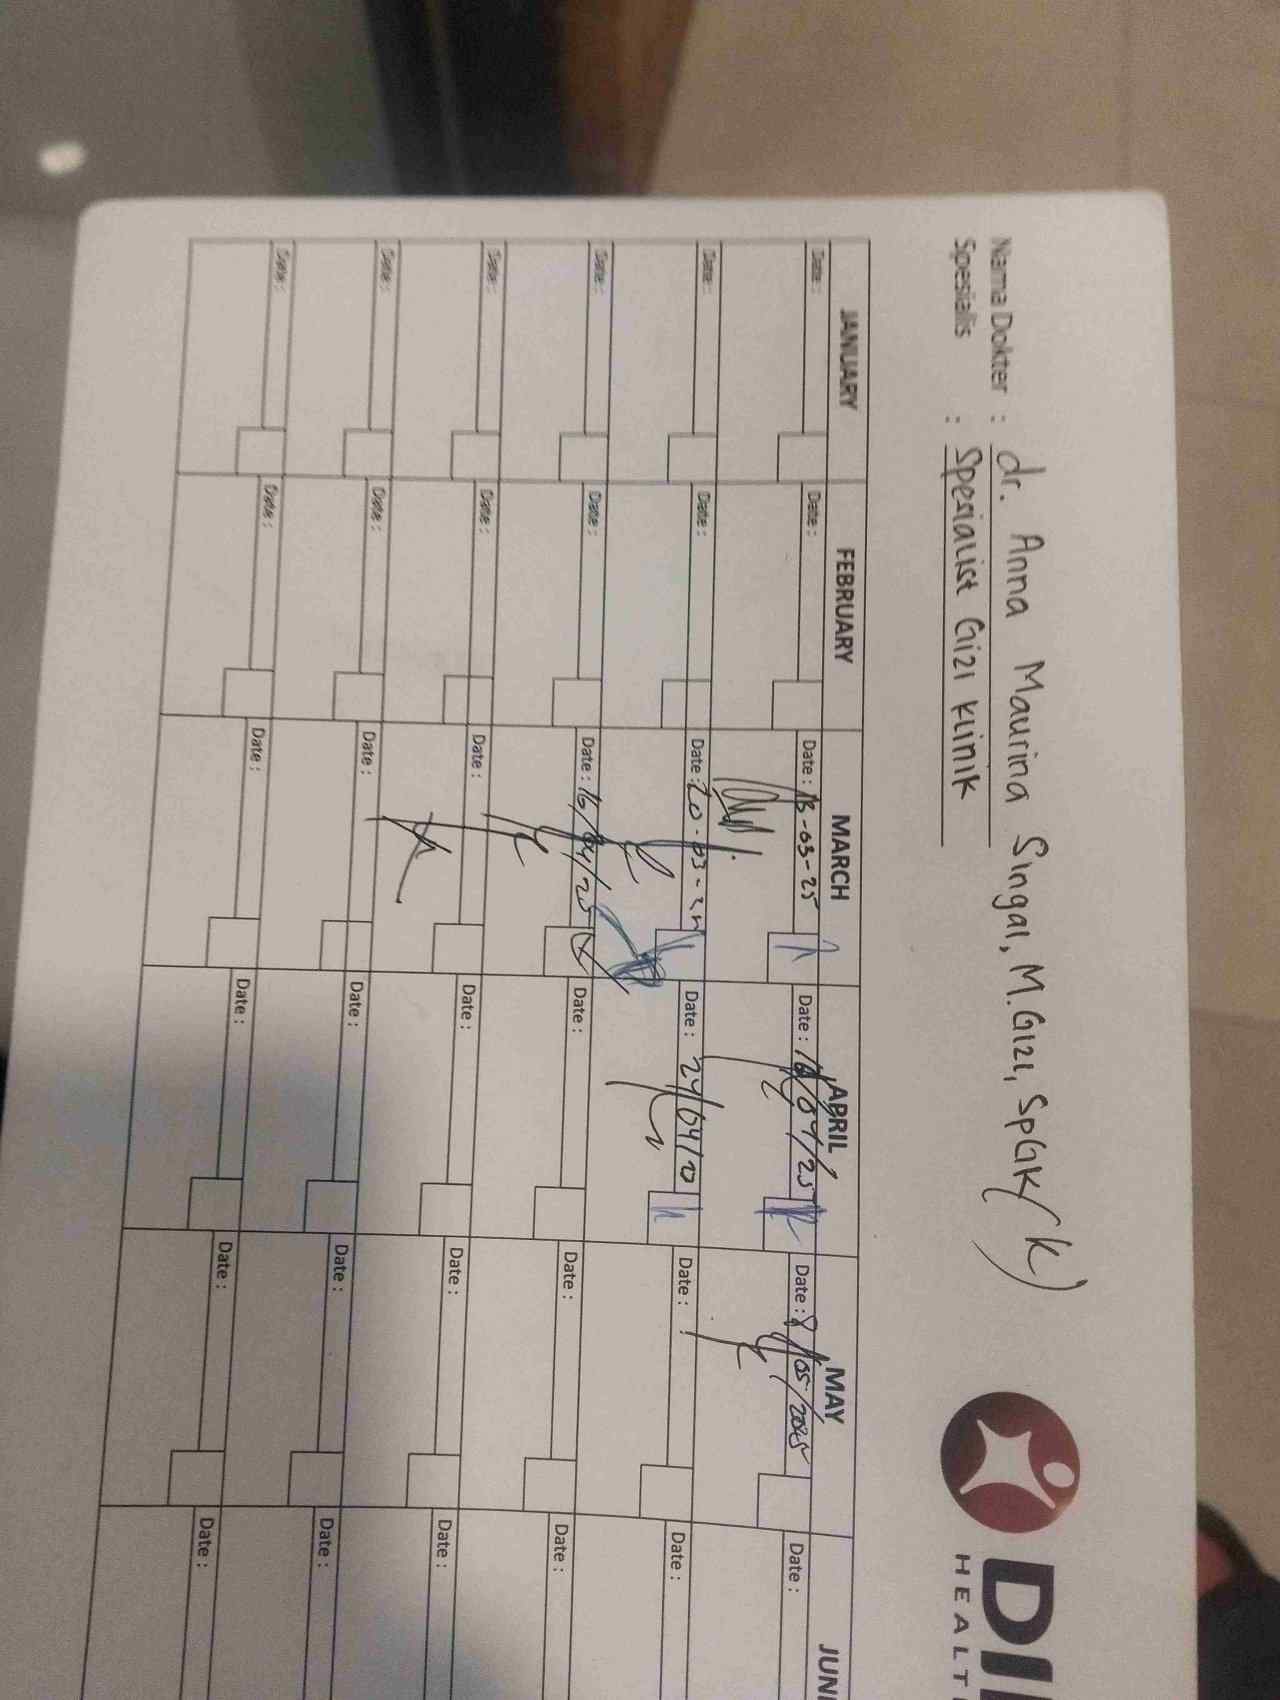 Nama Dokter : dr. Anna Maurina Singal, M.Gizi, SpGK(K)
Spesialis : Spesialist Gizi Klinik
DI
HEALT
JANUARY FEBRUARY MARCH APRIL MAY JUNE
Date : Date : Date : 13-03-25 Date : 16/04/25 Date : 8/05/2025 Date :
Date : Date : Date : 20-03-25 Date : 24/04/25 Date : Date :
Date : Date : Date : 16/04/25 Date : Date : Date :
Date : Date : Date : Date : Date : Date :
Date : Date : Date : Date : Date : Date :
Date : Date : Date : Date : Date : Date :